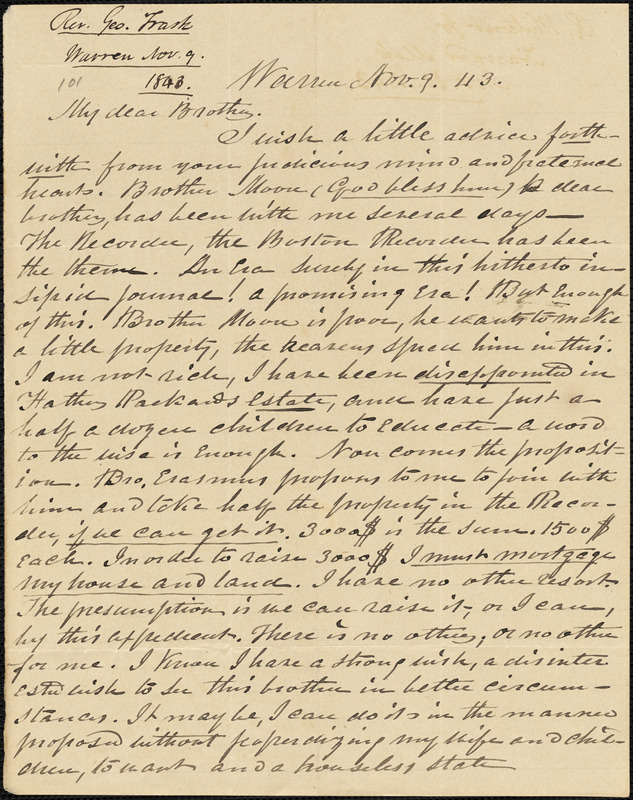 Rev. Geo. Trask
Warren Nov. 9.
101 1843.
Warren Nov. 9. 43.
My dear Brother.
I wish a little advice forth-
with from your judicious mind and fraternal
heart. Brother Moon (God bless him) dear
brother, has been with me several days—
The Recorder, the Boston Recorder has been
the theme. An Era surely in this hitherto in-
sipid journal! a promising Era! But Enough
of this. Brother Moon is poor, he wants to make
a little property, the heavens speed him in this.
I am not rich, I have been disappointed in
Father Packard's Estate, and have just a
half a dozen children to Educate— a word
to the wise is Enough. Now comes the proposit-
ion. Bro. Erasmus proposes to me to join with
him and take half the property in the Recor-
der, if we can get it. 3000$ is the sum. 1500$
Each. In order to raise 3000$ I must mortgage
my house and land. I have no other resort.
The presumption is we can raise it, or I can,
by this expedient. There is no other, or no other
for me. I know I have a strong wish, a disinter
ested wish to see this brother in better circum-
stances. It may be, I can do its in the manner
proposed without jeopardizing my wife and chil-
dren, to want and a houseless state